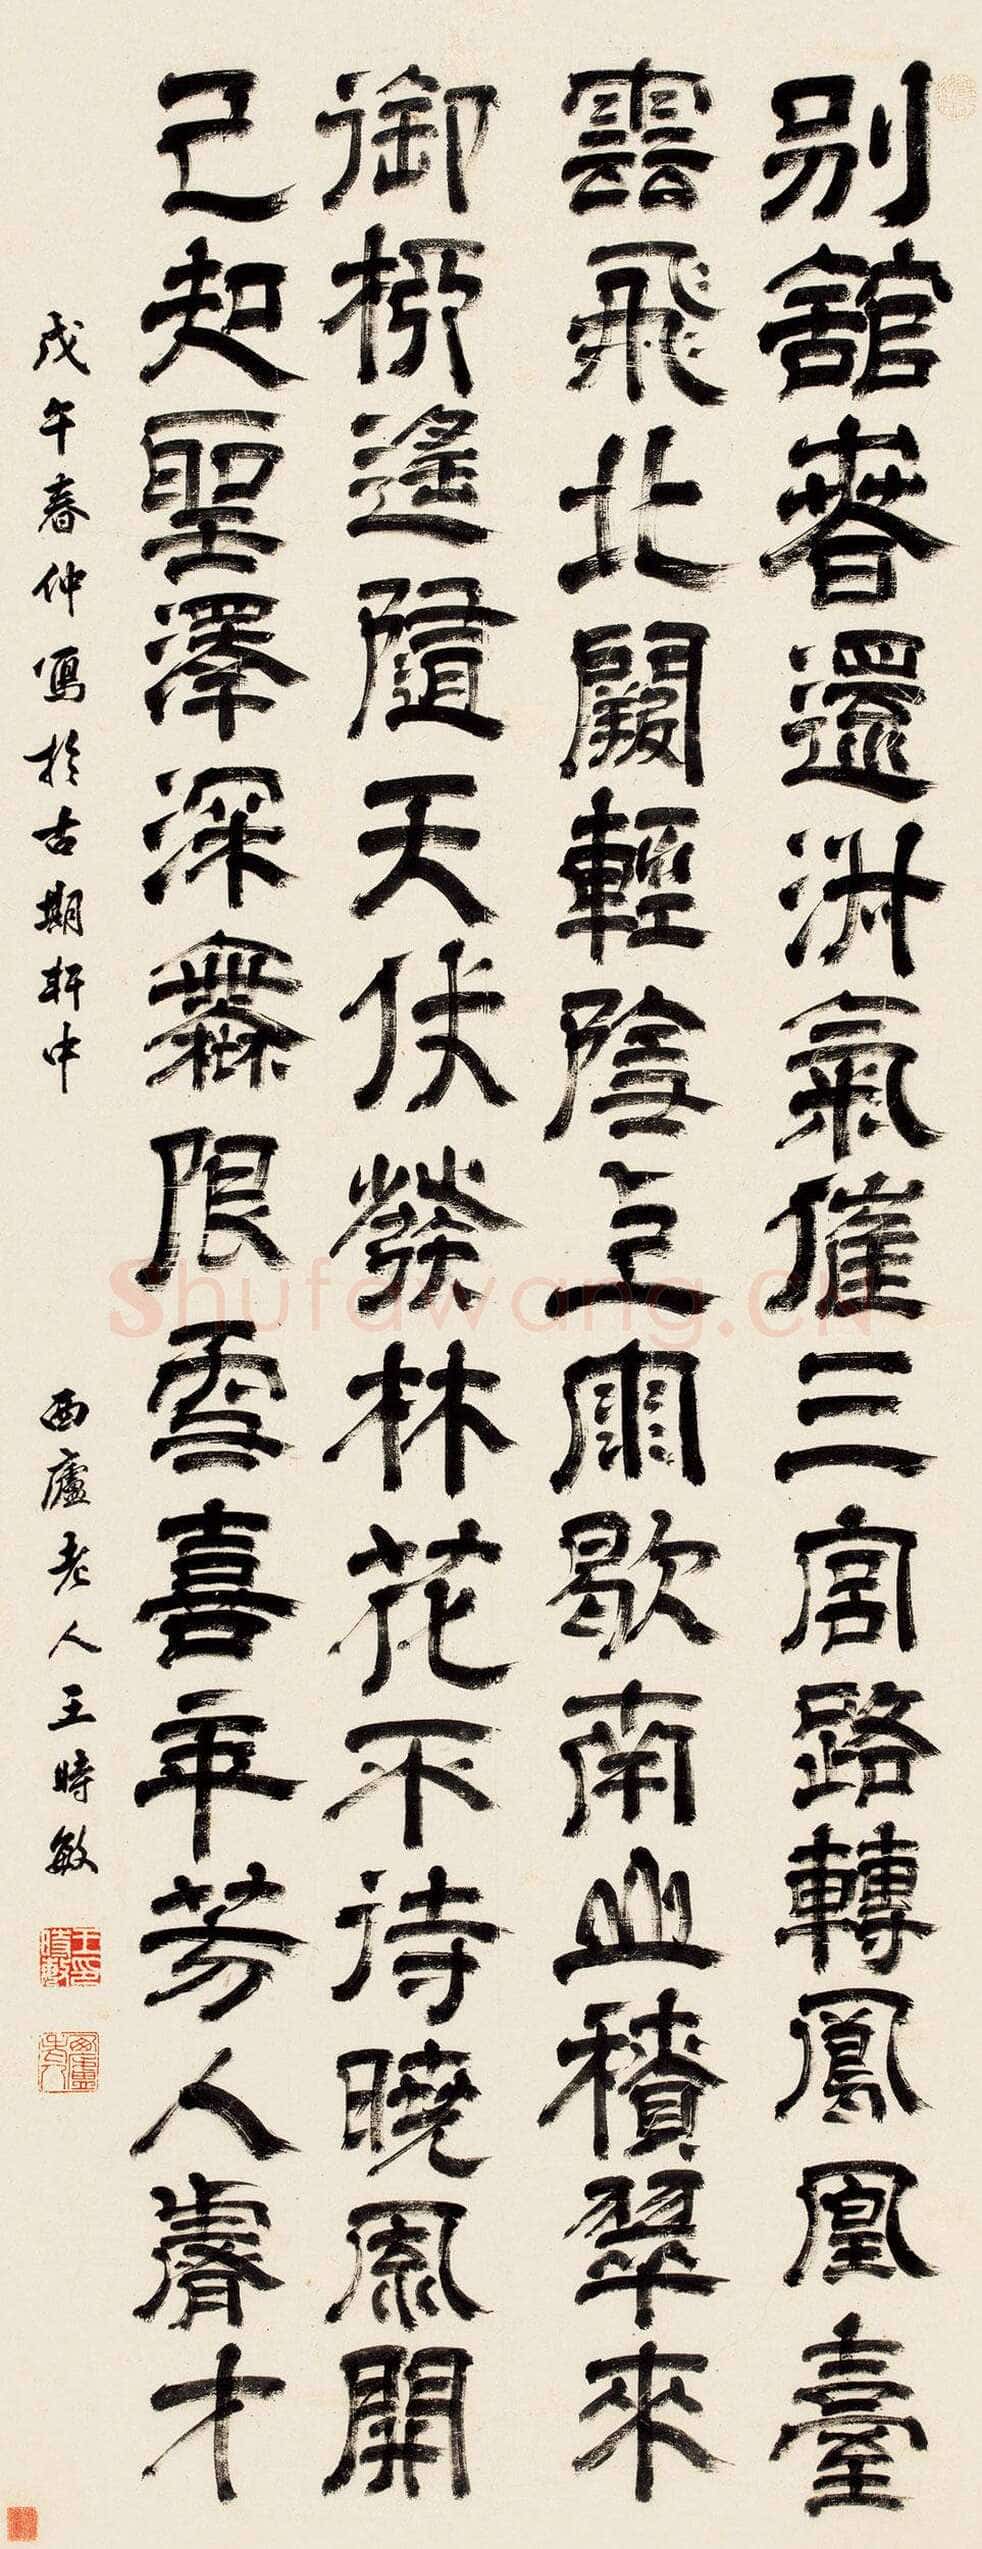 別館春還淑氣催三宮路轉鳳凰臺
雲飛北闕輕陰雨歇南山積翠來
御柳遙隨天仗發林花不待曉風開
已知聖澤深無限雪喜年芳入睿才
戊午春仲寫於古期軒中
西廬老人王時敏
王時敏印
西廬老人
Shufawang.CN